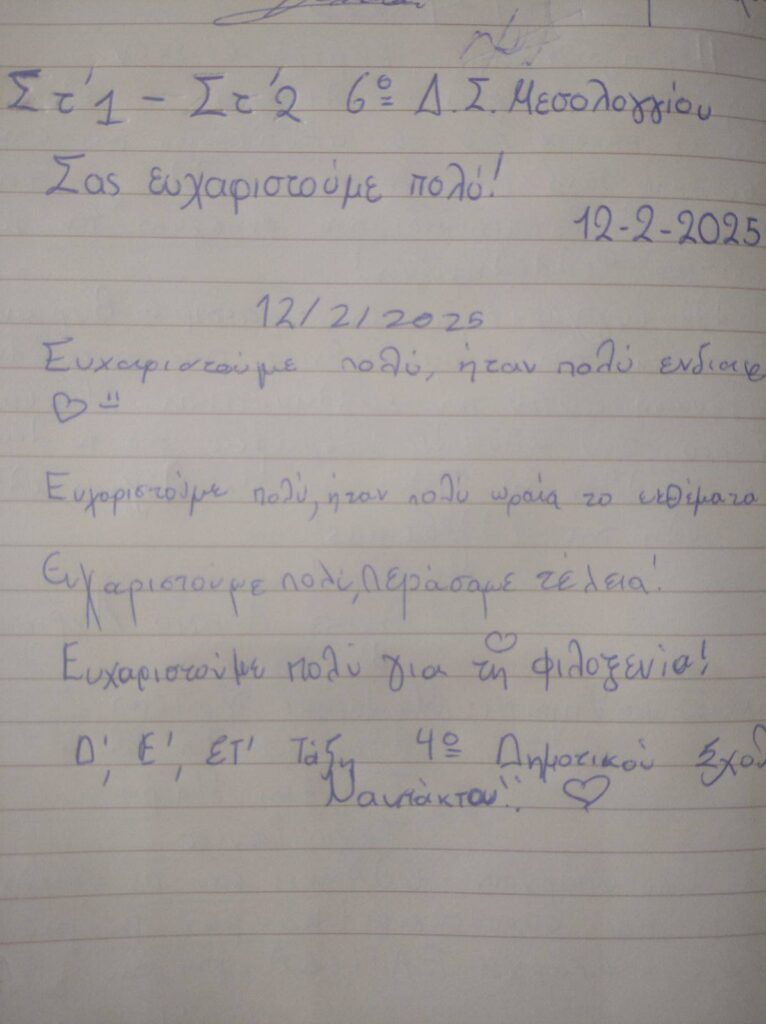 Στ'1 - Στ'2 6º Δ.Σ. Μεσολογγίου
Σας ευχαριστούμε πολύ!
12-2-2025
12/2/2025
Ευχαριστούμε πολύ, ήταν πολύ ενδιαφ
Ευχαριστούμε πολύ, ήταν πολύ ωραία το εκθέματα
Ευχαριστουμε πολύ, Περάσαμε τέλεια!
Ευχαριστούμε πολύ για τη φιλοξενία!
Δ', Ε', ΣΤ' Τάξη 4º Δημοτικού Σχολ
Ναυπάκτου!!